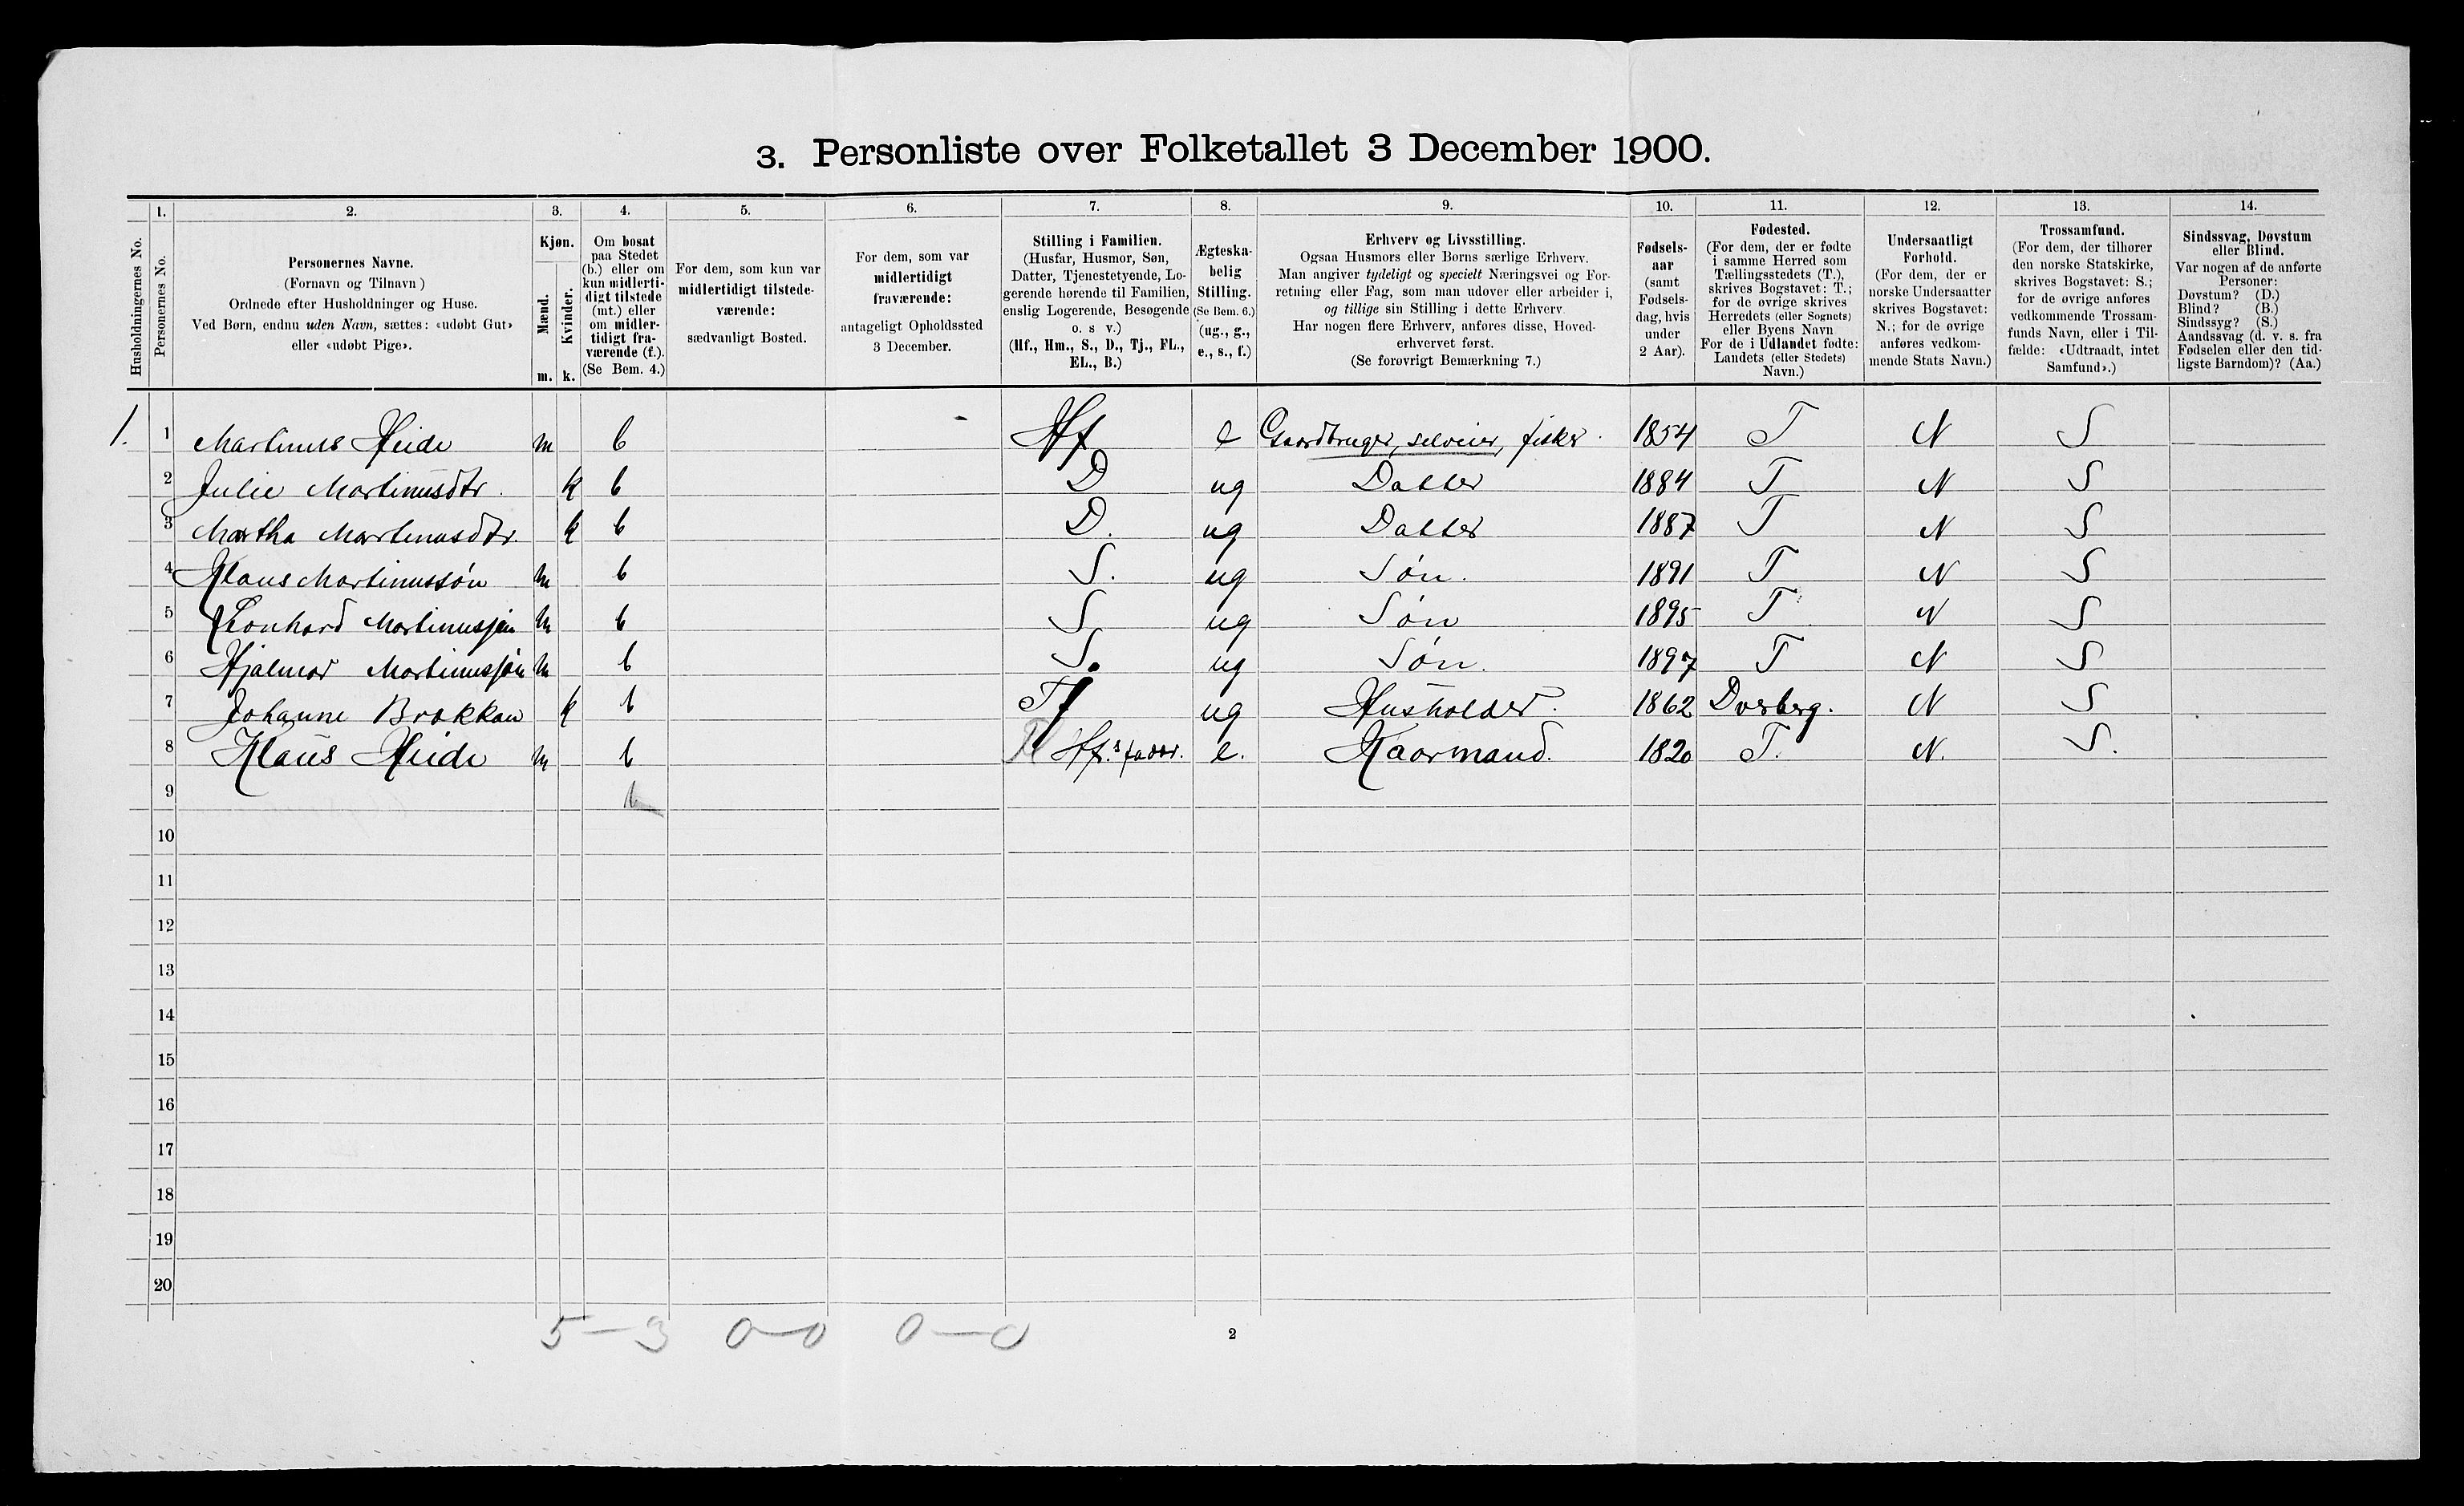 3. Personliste over Folketallet 3 December 1900.
1. 2. 3. 4. 5. 6. 7. 8. 9. 10. 11. 12. 13. 14.
Husholdningernes No.
Personernes No.
Personernes Navne.
(Fornavn og Tilnavn )
Ordnede efter Husholdninger og Huse.
Ved Børn, endnu uden Navn, sættes: «udøbt Gut»
eller «udøbt Pige».
Kjøn.
Mænd.
Kvinder.
m. k.
Om bosat
paa Stedet
(b.) eller om
kun midlerti-
digt tilstede
(mt.) eller
om midler-
tidigt fra-
værende (f.).
(Se Bem. 4.)
For dem, som kun var
midlertidigt tilstede-
værende:
sædvanligt Bosted.
For dem, som var
midlertidigt
fraværende:
antageligt Opholdssted
3 December.
Stilling i Familien.
(Husfar, Husmor, Søn,
Datter, Tjenestetyende, Lo-
gerende hørende til Familien,
enslig Logerende, Besøgende
o. s v.)
(Hf., Hm., S., D., Tj., FL.,
EL., B.)
Ægteska-
belig
Stilling.
(Se Bem. 6.)
(ug., g.,
e., s., f.)
Erhverv og Livsstilling.
Ogsaa Husmors eller Børns særlige Erhverv.
Man angiver tydeligt og specielt Næringsvei og For-
retning eller Fag, som man udøver eller arbeider i,
og tillige sin Stilling i dette Erhverv.
Har nogen flere Erhverv, anføres disse, Hoved-
erhvervet først.
(Se forøvrigt Bemærkning 7.)
Fødsels-
aar
(samt
Fødsels-
dag, hvis
under
2 Aar).
Fødested.
(For dem, der er fødte
i samme Herred som
Tællingsstedets (T.),
skrives Bogstavet: T.;
for de øvrige skrives
Herredets (eller Sognets)
eller Byens Navn
For de i Udlandet fødte:
Landets (eller Stedets)
Navn.)
Undersaatligt
Forhold.
(For dem, der er
norske Undersaatter
skrives Bogstavet:
N.; for de øvrige
anføres vedkom-
mende Stats Navn.)
Trossamfund.
(For dem, der tilhører
den norske Statskirke,
skrives Bogstavet: S.;
for de øvrige anføres
vedkommende Trossam-
funds Navn, eller i Til-
fælde: «Udtraadt, intet
Samfund».)
Sindssvag, Døvstum
eller Blind.
Var nogen af de anførte
Personer:
Døvstum? (D.)
Blind? (B.)
Sindssyg? (S.)
Aandssvag (d. v. s. fra
Fødselen eller den tid-
ligste Barndom)? (Aa.)
1. 1 Martinus Heide m b Hf e Gaardbruger, selveier, fisker. 1854 T N S
2 Julie Martinusdtr. k b D ug Datter 1884 T N S
3 Martha Martinusdtr. k b D. ug Datter 1887 T N S
4 Klaus Martinussón m b S. ug Søn. 1891 T N S
5 Leonhard Martinussjøn m b S ug Søn 1895 T N S
6 Hjalmar Martinussjøn m b S. ug Søn. 1897 T N S
7 Johanne Brækkan k b Tj ug Husholder. 1862 Dverberg. N S
8 Klaus Heide m b Hf.s fader. e. Kaarmand. 1820 T. N. S.
9 b
10
11
12
13
14
15
16
17
18
19
20
5—3 0—0 0—0
2